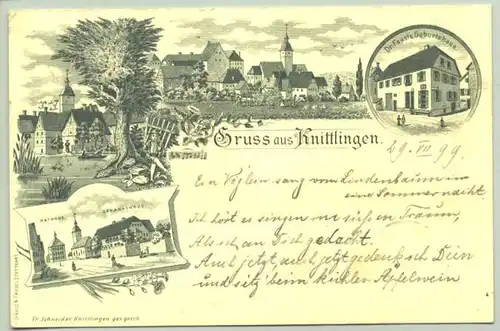 Dr. Faust's Geburtshaus.
Gruss aus Knittlingen.
29. VII 99
Ein Vöglein sang vom Lindenbaum in
eine Sommernacht
Ich hört es singen wie süßen Traum,
Als ich an Dich gedacht.
Auch jetzt, auch jetzt gedenk ich Dein
und sitz' beim kühlen Apfelwein
RATHAUS
Fr. Schneider Knittlingen ges. gesch.